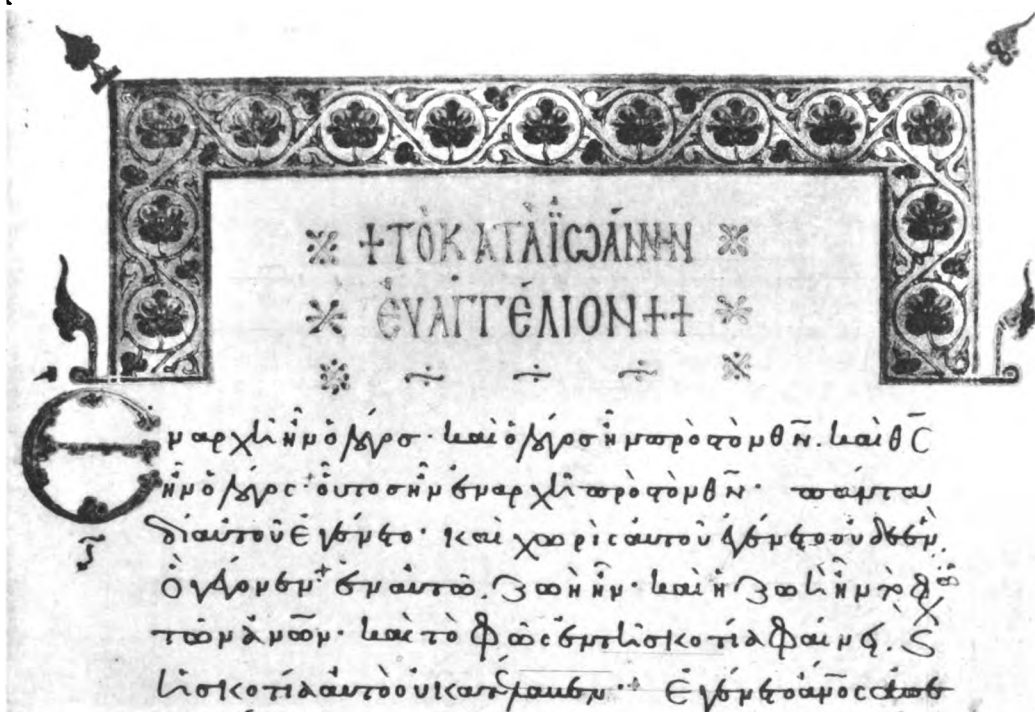 +ΤὸΚΑΤᾺἸΩΆΝΝΗΝ
ΕΥΑΓΓΈΛΙΟΝ++
Ἐν ἀρχῆ ἦν ὁ λόγος· καὶ ὁ λόγος ἦν πρὸς τὸν θν̅. καὶ θς̅
ἦν ὁ λόγος· οὗτος ἦν ἐν ἀρχῆ πρὸς τὸν θν̅· πάντα
δι αὐτοῦ ἐγένετο· καὶ χωρὶς αὐτοῦ ἐγένετο οὐδὲ ἕν.
ὃ γέγονεν+ ἐν αὐτῶ. ζωὴ ἦν· καὶ ἡ ζωὴ ἦν τὸ φῶς
τῶν ἀνω̅ν· καὶ τὸ φῶς ἐν τῆ σκοτία φαίνει. καὶ
ἡ σκοτία αὐτὸ οὐ κατέλαβεν+ Ἐγένετο ἀνο̅ς